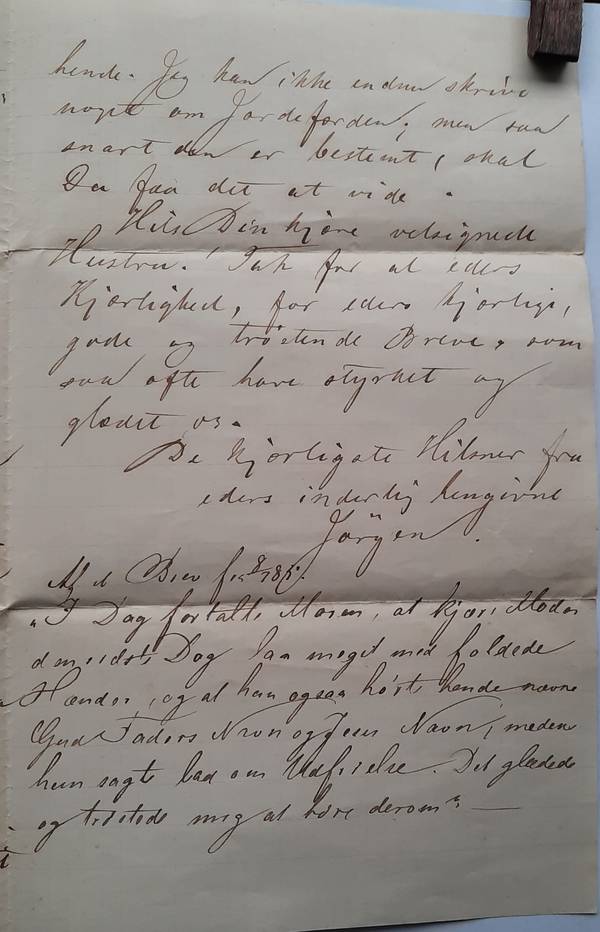 hende. Jeg kan ikke endnu skrive
noget om Jordefærden; men saa
snart den er bestemt, skal
Du faa det at vide.
Hils Din kjære velsignede
Hustru! Tak for al eders
Kjærlighed, for eders kjærlige,
gode og trøstende Breve, som
saa ofte have styrket og
glædet os.
De kjærligste Hilsner fra
eders inderlig hengivne
Jörgen.
Af et Brev fra
"I Dag fortalte Maren, at kjære Moder
den sidste Dag laa meget med foldede
Hænder, og at hun ogsaa hørte hende nævne
Gud Faders Navn og Jesu Navn, medens
hun sagte bad om Udfrielse. Det glædede
og trøstede mig at høre derom". —